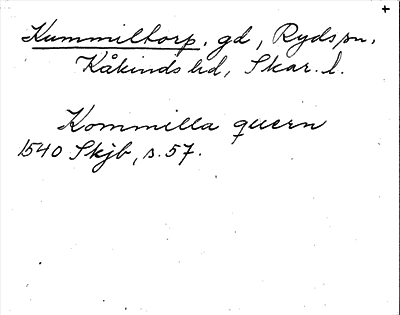 +
Kummiltorp, gd, Ryds sn,
Kåkinds hd, Skar. l.
Kommilla quern
1540 Skjb, s. 57.